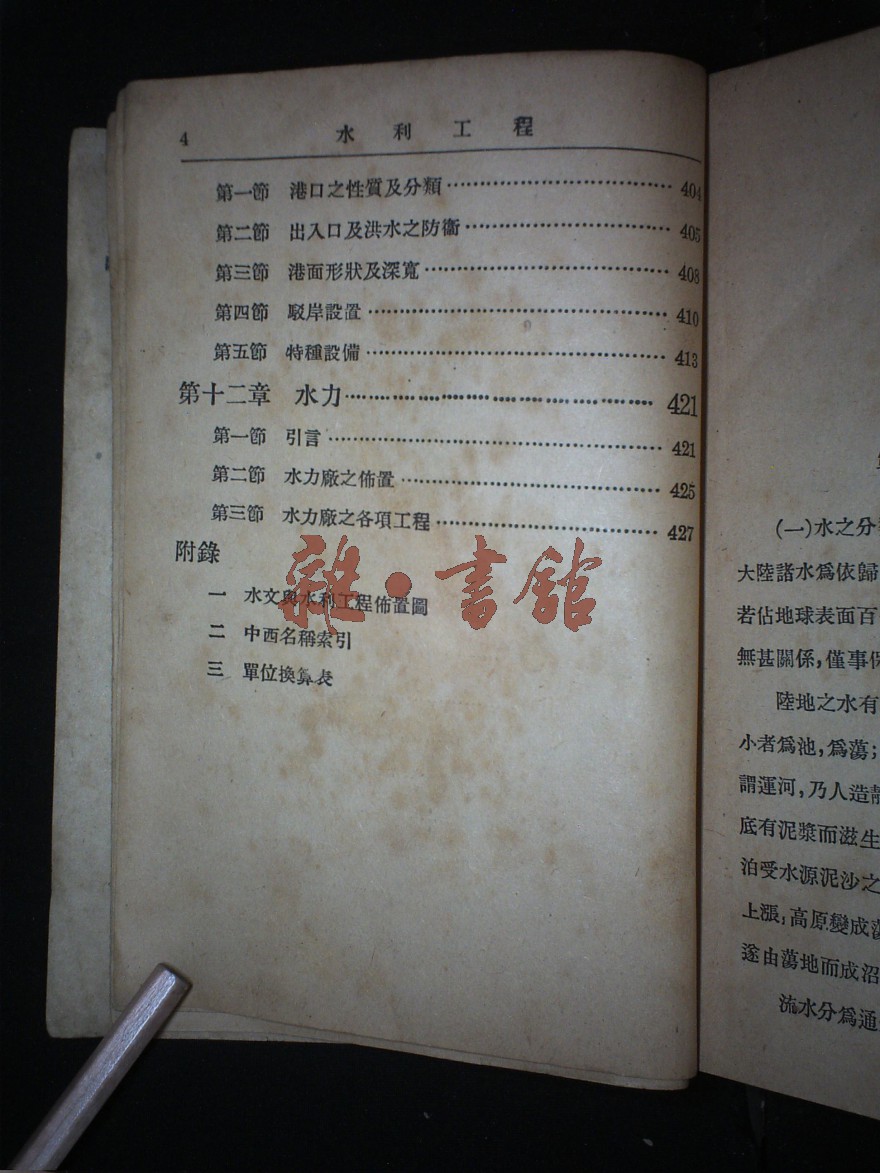 4 水利工程
第一節 港口之性質及分類 404
第二節 出入口及洪水之防衞 405
第三節 港面形狀及深寬 408
第四節 駁岸設置 410
第五節 特種設備 413
第十二章 水力 421
第一節 引言 421
第二節 水力廠之佈置 425
第三節 水力廠之各項工程 427
附錄
一 水文與水利工程佈置圖
二 中西名稱索引
三 單位換算表
雜·書館
(一)水之分
大陸諸水爲依歸
若佔地球表面百
無甚關係,僅事
陸地之水有
小者爲池,爲蕩;
謂運河,乃人造
底有泥漿而滋生
泊受水源泥沙之
上漲,高原變成
遂由蕩地而成沼
流水分爲通